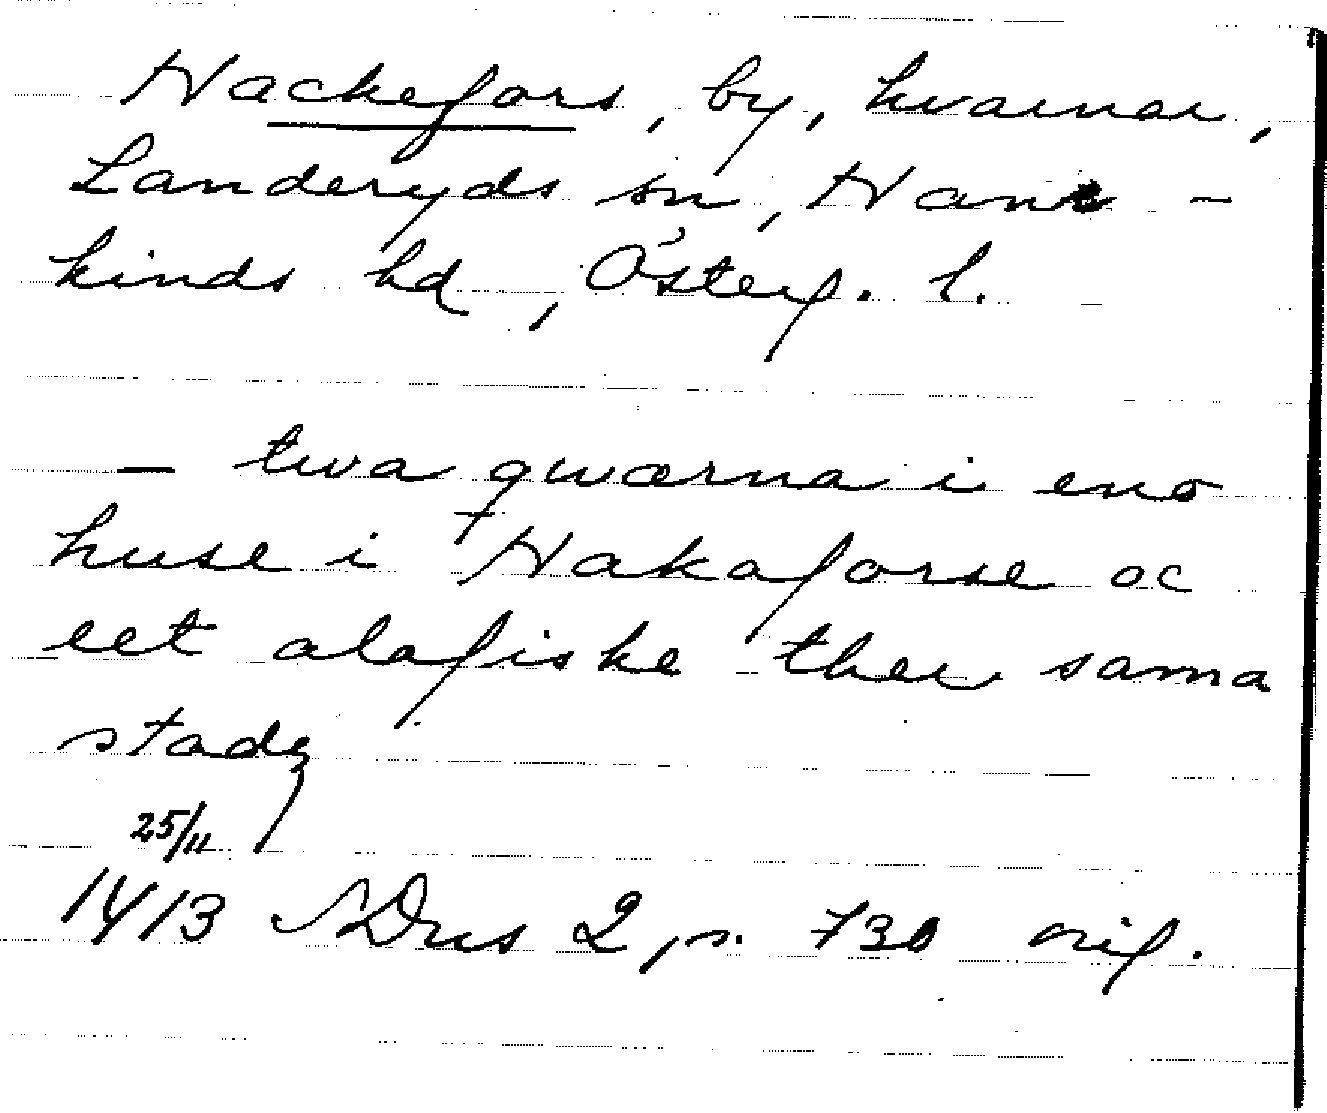 Hackefors, by, kvarnar,
Landeryds sn, Hane-
kinds hd, Österg. l.
— twa qwærna i eno
huse i Hakaforse oc
eet alafiske ther sama
stadz
25/11
1413 SDns 2, s. 730 orig.